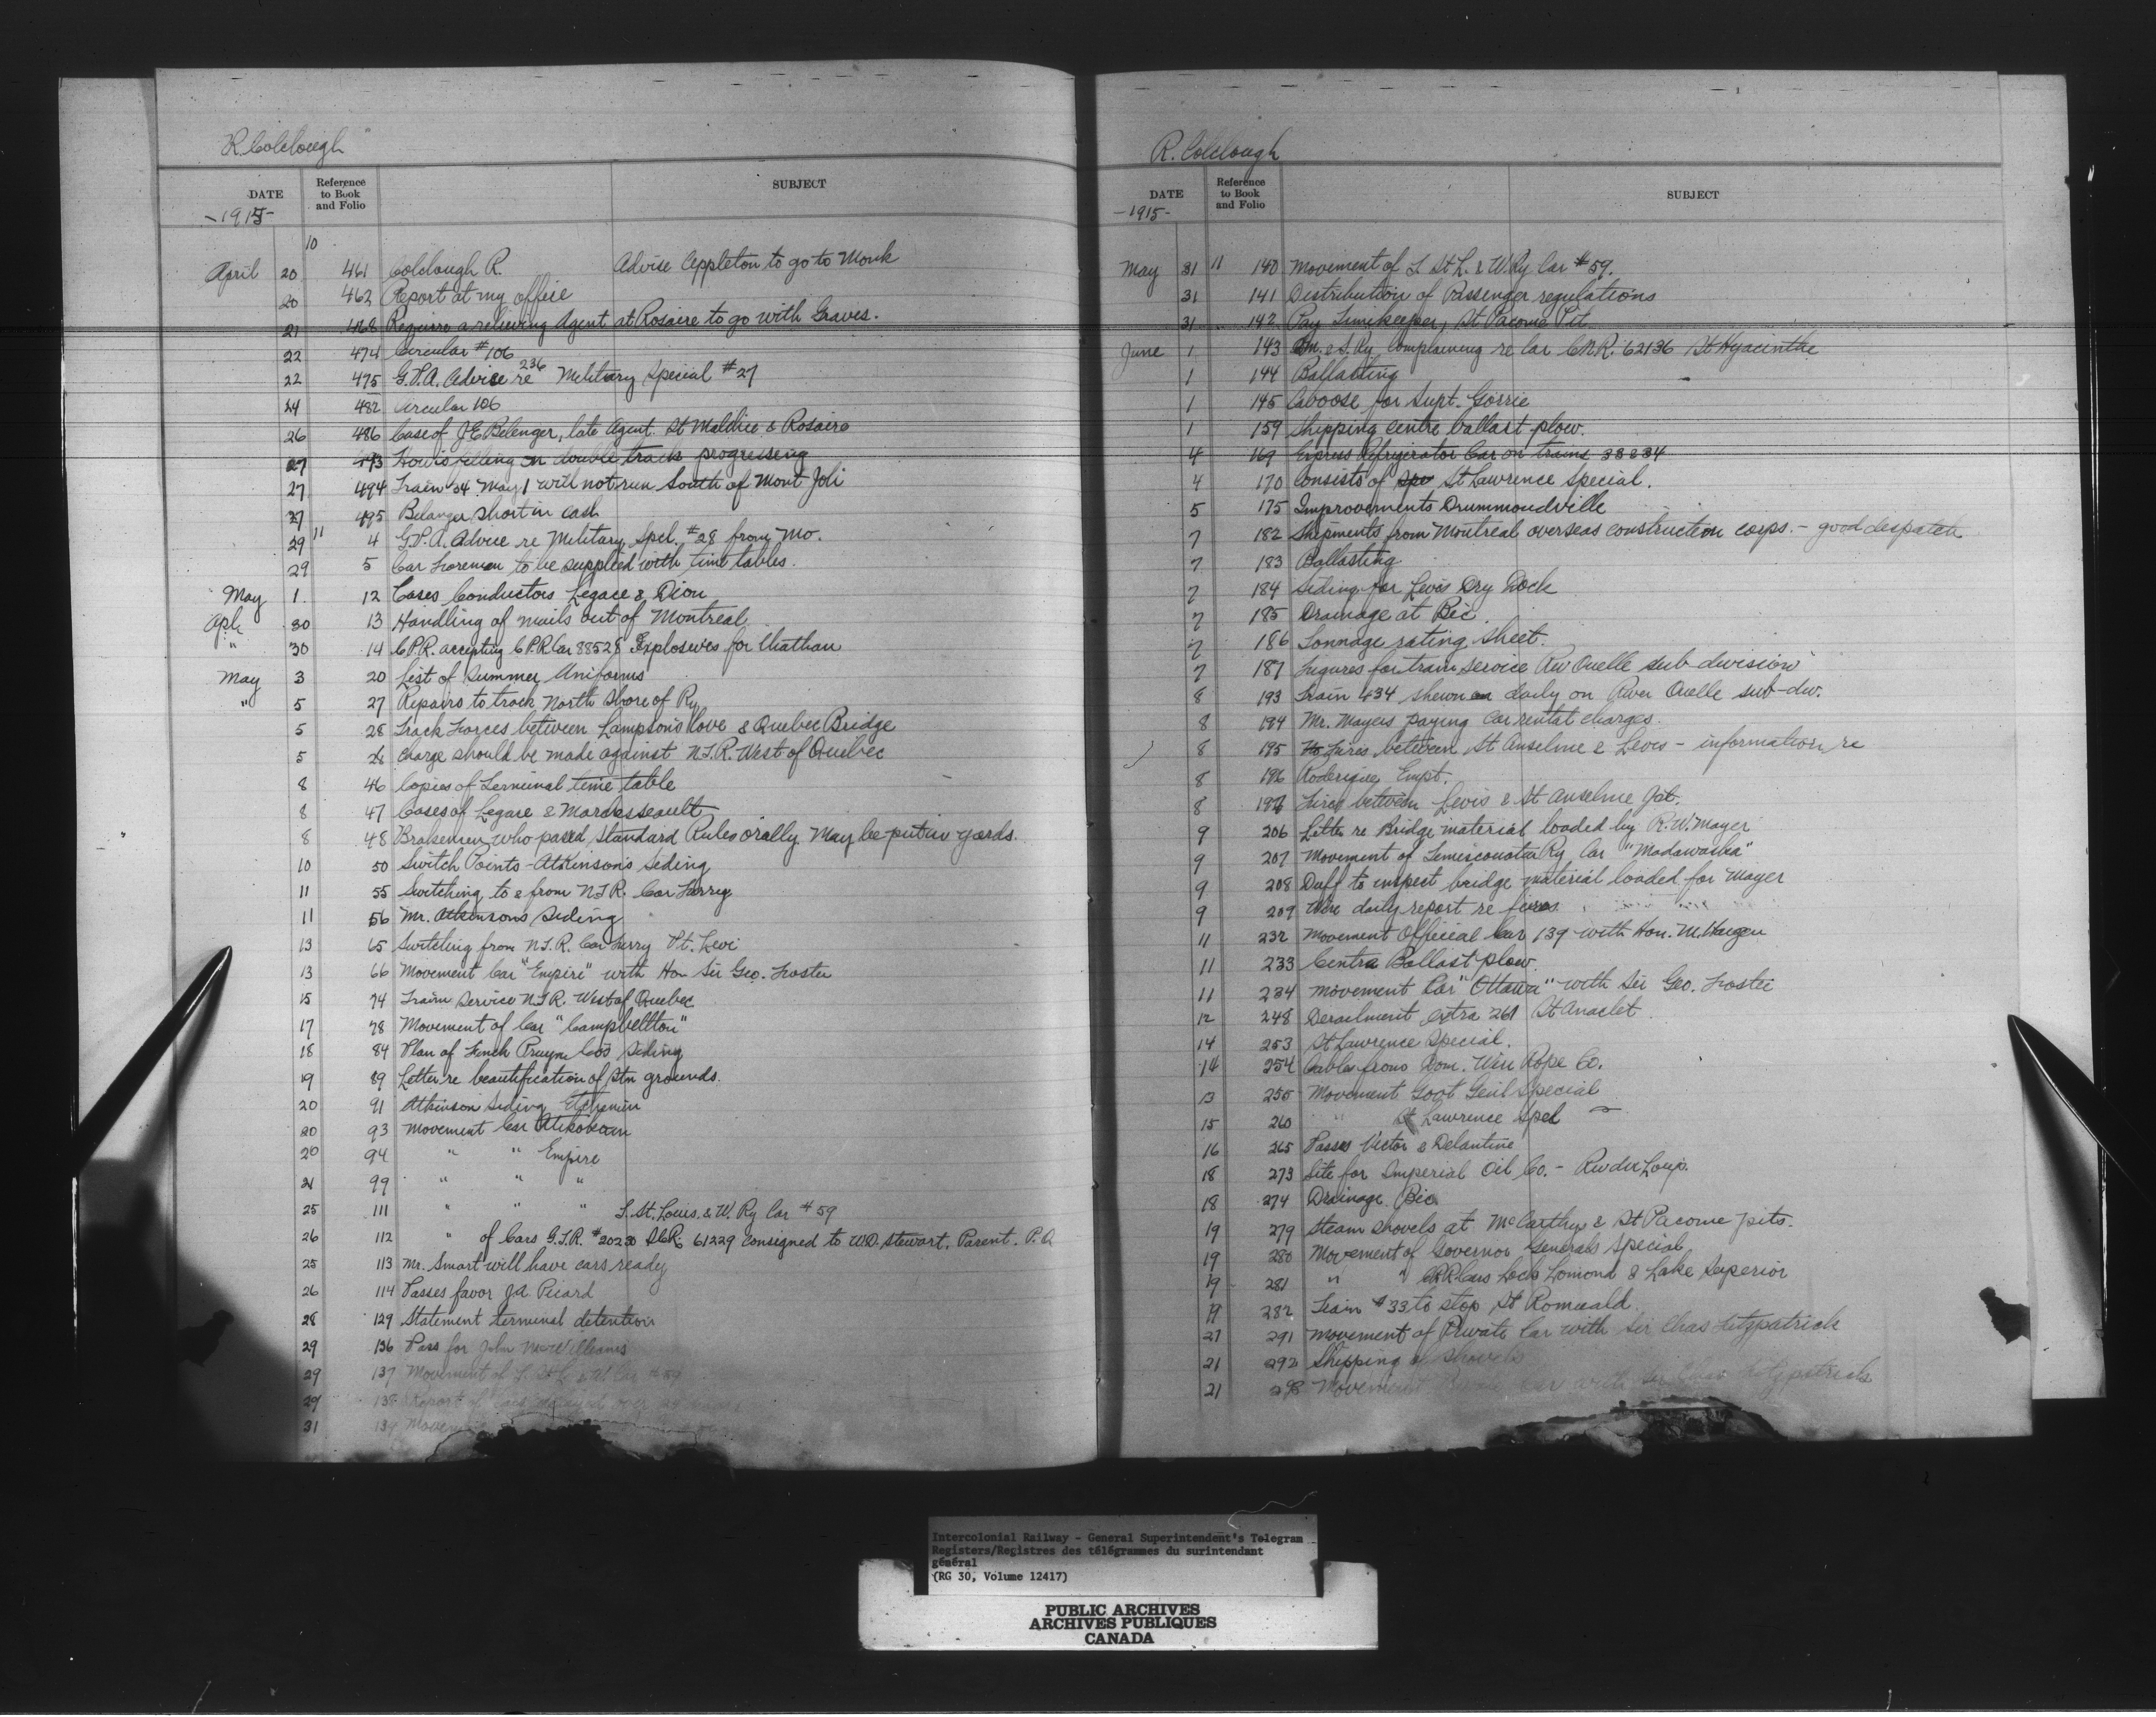 R. Colclough
DATE
Reference to Book and Folio
SUBJECT
-1915-
10
April 20 461 Colclough R. Advise Appleton to go to Monk
20 462 Report at my office
21 468 Require a relieving Agent at Rosaire to go with Graves.
22 474 Circular #106
22 475 G.P.A. Advice re 236 Military Special #27
24 482 Circular 106
26 486 Case of J E Belenger, late Agent St Malchie & Rosaire
27 493 How is filling on double track progressing
27 494 Train 34 May 1 will not run South of Mont Joli
27 495 Belanger short in cash
29 11 4 G.P.A. Advice re Military Spel. #28 from Mo.
29 5 Car Foremen to be supplied with time tables.
May 1 12 Cases Conductors Legace & Dion
Apl 30 13 Handling of mails out of Montreal
" 30 14 C.P.R. accepting C.P.R Car 88528 Explosives for Chathan
May 3 20 List of Summer Uniforms
" 5 27 Repairs to track North Shore of Ry
5 28 Track Forces between Lampsons Cove & Quebec Bridge
5 28 Charge should be made against N.T.R. West of Quebec
8 46 Copies of Terminal time table
8 47 Cases of Legace & Marlesseault
8 48 Brakemen who passed Standard Rules orally. May be put in yards.
10 50 Switch Points - Atkinson's Siding
11 55 Switching to & from N.T.R. Car Ferry
11 56 Mr. Atkinsons Siding
13 65 Switching from N.T.R. Car Ferry Pt. Levi
13 66 Movement Car "Empire" with Hon Sir Geo. Foster
15 74 Train Service N.T.R. West of Quebec
17 78 Movement of Car "Campbellton"
18 84 Plan of Finch Pruyn Co's Siding
19 89 Letter re beautification of stn grounds.
20 91 Atkinson Siding Etchemin
20 93 Movement Car Atikokan
20 94 " " Empire
21 99 " " "
25 111 " " " T. St. Louis. & W. Ry Car #59
26 112 " of Cars G.T.R. #20230 61229 consigned to W.D. Stewart, Parent. P.Q
25 113 Mr. Smart will have cars ready
26 114 Passes favor J.A. Picard
28 129 Statement terminal detention
29 136 Pass for John McWilliams
29 137 Movement of T. St L & W Car #59
29 138 Report of cars delayed over 24
31 139 Movement
R. Colclough
DATE
Reference to Book and Folio
SUBJECT
-1915-
May 31 11 140 Movement of T. St L. & W. Ry Car #59.
31 141 Distribution of Passenger regulations
31 142 Pay Timekeeper, St Pacome Pit
June 1 143 Q.M. & S. Ry Complaining re Car C.N.R. 62136 St Hyacinthe
1 144 Ballasting
1 145 Caboose for Supt. Gorrie
1 159 Shipping centre ballast plow.
4 169 Express Refrigerator Car on trains 33 & 34
4 170 Consists of St Lawrence Special.
5 175 Improvements Drummondville
7 182 Shipments from Montreal overseas construction corps. - good despatch
7 183 Ballasting
7 184 Siding for Levis Dry Dock
7 185 Drainage at Bic.
7 186 Tonnage rating sheet.
7 187 Figures for train service Riv Ouelle sub division
8 193 Train 434 shewn daily on River Ouelle sub-div.
8 194 Mr. Mayers paying Car rental charges.
8 195 Fires between St Anselme & Levis - information re
8 196 Roderique Empt.
8 197 Fires between Levis & St Anselme Jct.
9 206 Letter re Bridge material loaded by R.W. Mayer
9 207 Movement of Temiscouata Ry Car "Madawaska"
9 208 Duff to inspect bridge material loaded for Mayer
9 209 Wire daily report re fires.
11 232 Movement Official Car 139 with Hon. M. Hazen
11 233 Centre Ballast plow.
11 234 Movement Car "Ottawa" with Sir Geo. Foster
12 248 Derailment extra 261 St Anaclet
14 253 St Lawrence Special.
14 254 Cables from Dom. Wire Rope Co.
13 255 Movement Govt Genl Special
15 260 " St Lawrence Spel
16 265 Passes Victor & Delantine
18 273 Site for Imperial Oil Co. - Riv du Loup.
18 274 Drainage Bic
19 279 Steam shovels at McCarthys & St Pacome pits.
19 280 Movement of Governor Generals Special
19 281 " " C.P.R Cars Loch Lomond & Lake Superior
19 282 Train #33 to stop St Romuald.
21 291 Movement of Private Car with Sir Chas Fitzpatrick
21 292 Shipping of shovels
21 298 Movement Private Car with Sir Chas Fitzpatrick
Intercolonial Railway - General Superintendent's Telegram
Registers/Registres des télégrammes du surintendant
général
(RG 30, Volume 12417)
PUBLIC ARCHIVES
ARCHIVES PUBLIQUES
CANADA